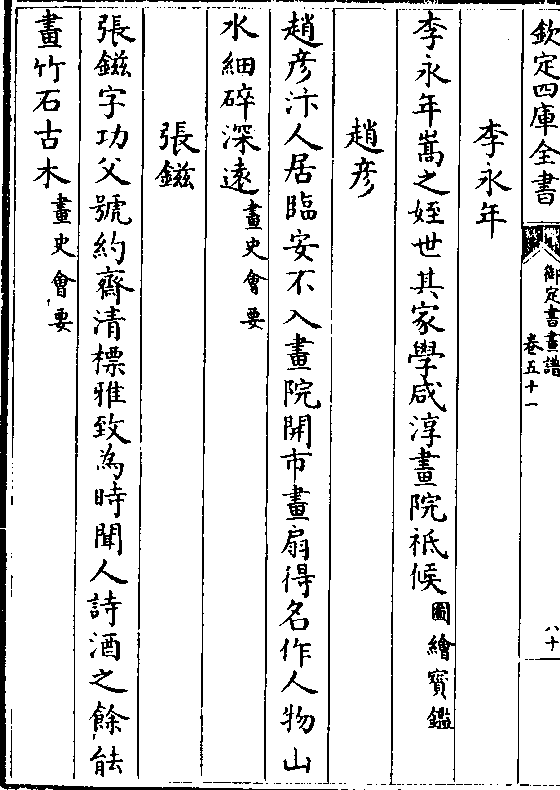 欽定四庫全書
御定書畫譜
卷五十一
八十
李永年
李永年嵩之姪世其家學咸淳畫院祗候圖繪寶鑑
趙彦
趙彦汴人居臨安不入畫院開市畫扇得名作人物山
水細碎深遠畫史會要
張鎡
張鎡字功父號約齋清標雅致為時聞人詩酒之餘能
畫竹石古木畫史會要